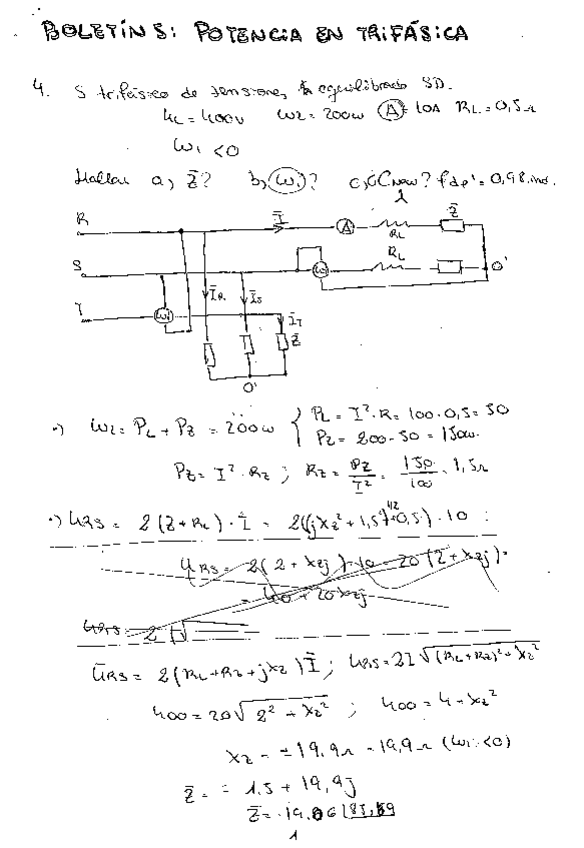 BOLETÍN 5: POTENCIA EN TRIFÁSICA
4. S trifásico de tensiones equilibrado SD.
UL = 400V W2 = 200W (A) = 10A RL = 0,5Ω
W1 < 0
Hallar a) Z̄? b) W1? c) QCnew? fdp' = 0,98 ind.
R Ī A RL Z̄
S W2 RL O'
T W1 ĪR ĪS ĪT Z̄
O'
·) W2 = PL + PZ = 200W { PL = I²·R = 100·0,5 = 50
PZ = 200-50 = 150W.
PZ = I²·RZ ; RZ = PZ/I² = 150/100 = 1,5Ω
·) URS = 2(Z+RL)·I = 2((jXZ²+1,5²)^1/2+0,5)·10 :
URS = 2(2+XZj)·10 = 20(2+XZj) =
= 40+20XZj
URS = 2
ŪRS = 2(RL+RZ+jXZ)Ī ; URS = 2I√((RL+RZ)²+XZ²
400 = 20√2²+XZ² ; 400 = 4+XZ²
XZ = ±19,9Ω = 19,9Ω (W1<0)
Z̄ = = 1.5 + 19,9j
Z̄ = 19.96
1